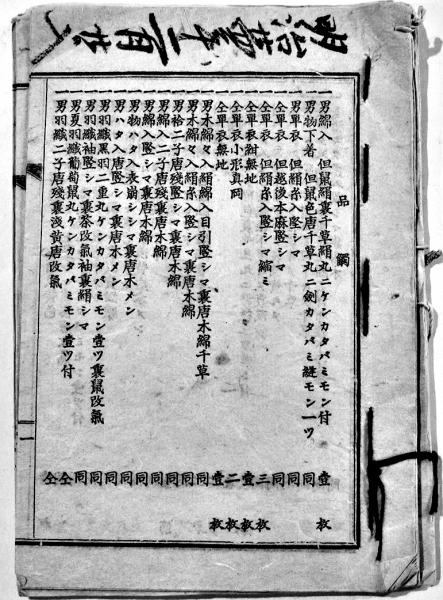 明治
品
一男綿入　但鼠絹裏千草絹丸ニケンカタバミモン付　壹枚
一男物下着　但鼠色唐千草丸ニ劍カタバミ縫モン一ツ　同
一男單衣　但絹糸入竪シマ　同
一仝單衣　但越後本麻竪シマ　同
一仝單衣　但絹糸入竪シマ縮ミ　三枚
一仝單衣紺無地　壹枚
一仝單衣小形真岡　二枚
一仝單衣無地　壹枚
一男木綿々入絹綿入目引竪シマ裏唐木綿千草　同
一男木綿々入絹糸入竪シマ裏唐木綿　同
一男袷二子唐殘竪シマ裏唐木綿　同
一男綿入二子唐殘裏唐木綿　同
一男物ハタ入表崩シシマ裏唐木メン　同
一男ハタ入唐竪シマ裏唐木メン　同
一男羽織黒羽二重丸ケンカタバミモン壹ツ裏鼠改氣　同
一男羽織袖竪シマ裏茶改氣袖裏絹シマ　同
一男夏羽織葡萄鼠丸ケンカタバミモン壹ツ付　仝
一男羽織二子唐殘裏淺黄唐改氣　仝